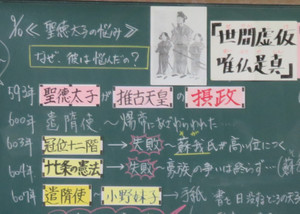 ≪聖徳太子の悩み≫
なぜ、彼は悩んだの?
「世間虚仮
唯仏是真」
593年 聖徳太子が推古天皇の摂政
600年 遣隋使 〜
603年 冠位十二階 → 失敗 〜蘇我氏が高い位につく
604年 十七条の憲法 → 失敗 〜豪族の争いは終らず…
607年 遣隋使 小野妹子 → 手紙